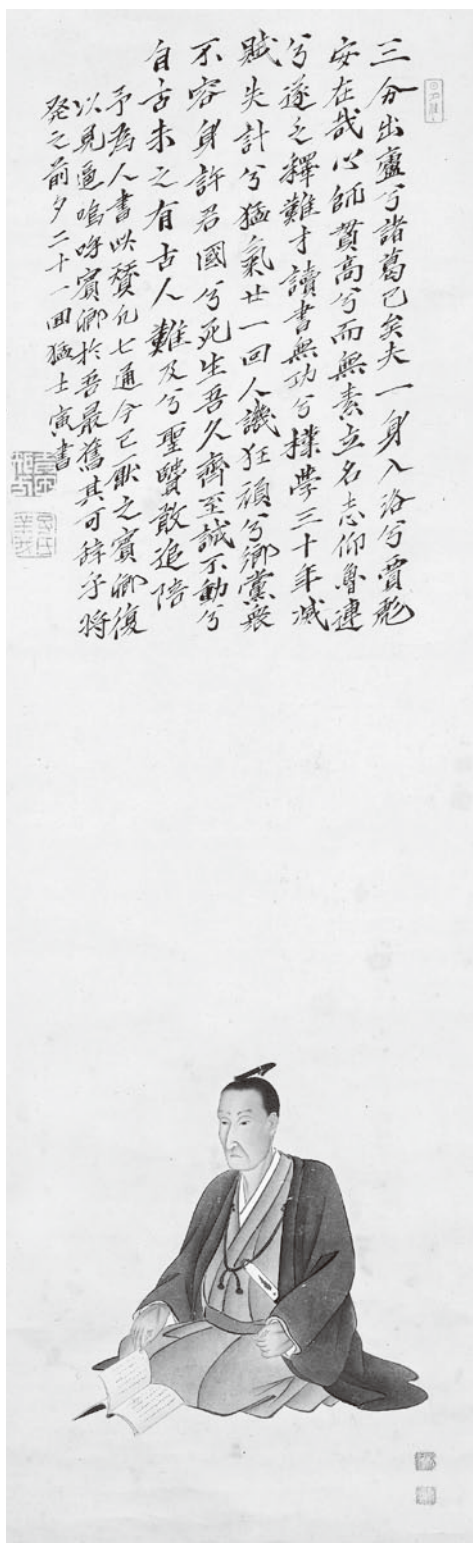 三分出廬兮諸葛已矣夫一身入洛兮賈彪
安在哉心師貫高兮而無素立名志仰魯連
兮遂之釋難才讀書無功兮樸學三十年滅
賊失計兮猛氣廿一回人譏狂頑兮鄉黨衆
不容身許君國兮死生吾久齊至誠不動兮
自古未之有古人難及兮聖賢敢追陪
予為人書此贊凡七通今已厭之賓卿復
以見逼嗚呼賓卿於吾最舊其可辞乎將
發之前夕二十一回猛士寅書